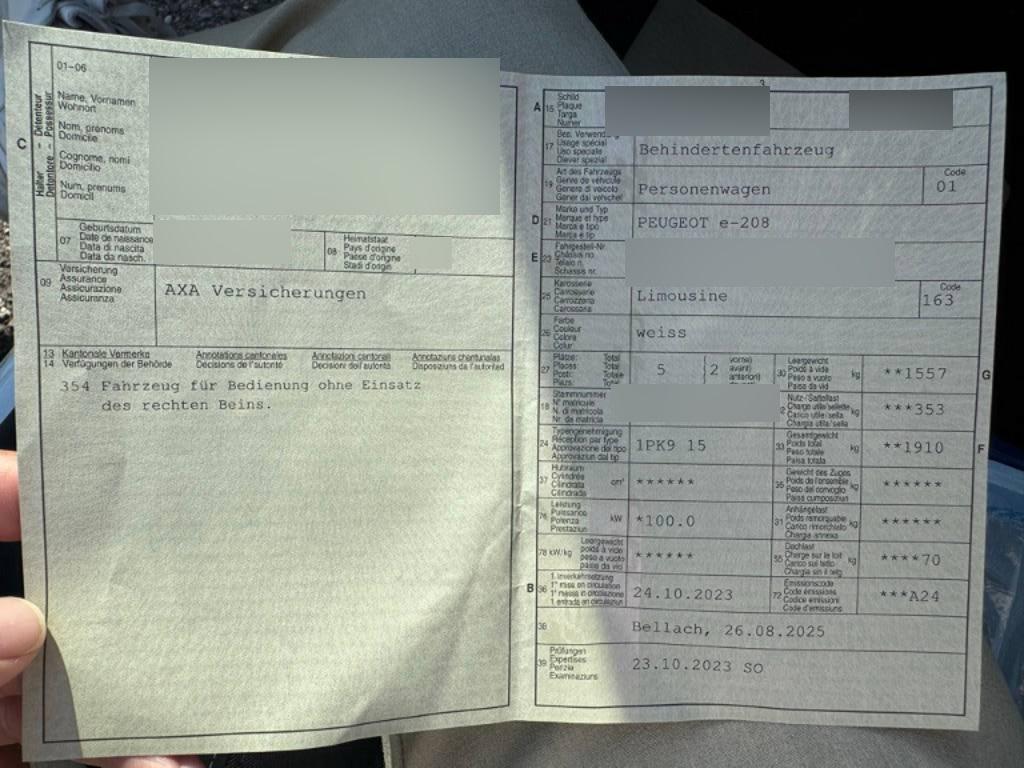 01-06
C
Halter - Detenteur
Detentore - Possessur
Name, Vornamen
Wohnort
Nom, prénoms
Domicile
Cognome, nomi
Domicilio
Num, prenums
Domicil
07
Geburtsdatum
Date de naissance
Data di nascita
Data da nasch.
08
Heimatstaat
Pays d'origine
Paese d'origine
Stadi d'origin
09
Versicherung
Assurance
Assicurazione
Assicuranza
AXA Versicherungen
13 Kantonale Vermerke Annotations cantonales Annotazioni cantonali Annotaziuns chantunalas
14 Verfügungen der Behörde Décisions de l'autorité Decisioni dell'autorità Disposiziuns da l'autoritad
354 Fahrzeug für Bedienung ohne Einsatz
des rechten Beins.
3
A 15
Schild
Plaque
Targa
Numer
17
Bes. Verwend
Usage spécial
Uso speciale
Diever spezial
Behindertenfahrzeug
19
Art des Fahrzeugs
Genre de véhicule
Genere di veicolo
Gener dal vehichel
Personenwagen
Code
01
D 21
Marke und Typ
Marque et type
Marca e tipo
Marca e tip
PEUGEOT e-208
E 23
Fahrgestell-Nr.
Châssis no
Telaio n.
Schassis nr.
25
Karosserie
Carrosserie
Carrozzeria
Carossaria
Limousine
Code
163
26
Farbe
Couleur
Colore
Colur
weiss
27
Plätze: Total
Places: Total
Posti: Totale
Plazs: Total
5
2
vorne)
avant)
anteriori)
30
Leergewicht
Poids à vide
Peso a vuoto
Paisa da vid
kg
**1557
G
18
Stammnummer
N° matricule
N. di matricola
Nr. da matricla
Nutz-/Sattellast
Charge utile/sellette
Carico utile/sella
Chargia utila/sella
kg
***353
24
Typengenehmigung
Réception par type
Approvazione del tipo
Approvaziun dal tip
1PK9 15
33
Gesamtgewicht
Poids total
Peso totale
Paisa totala
kg
**1910
F
37
Hubraum
Cylindrée
Cilindrata
Cilindrada
cm³
******
35
Gewicht des Zuges
Poids de l'ensemble
Peso del convoglio
Paisa cumposiziun
kg
******
76
Leistung
Puissance
Potenza
Prestaziun
kW
*100.0
31
Anhängelast
Poids remorquable
Carico rimorchiato
Chargia annexa
kg
******
78 kW/kg
Leergewicht
poids à vide
peso a vuoto
paisa da vid
******
55
Dachlast
Charge sur le toit
Carico sul tetto
Chargia sin il tetg
kg
****70
B 36
1. Inverkehrsetzung
1re mise en circulation
1a messa in circolazione
1. entrada en circulaziun
24.10.2023
72
Emissionscode
Code émissions
Codice emissioni
Code d'emissiuns
***A24
38
Bellach, 26.08.2025
39
Prüfungen
Expertises
Perizia
Examinaziuns
23.10.2023 SO